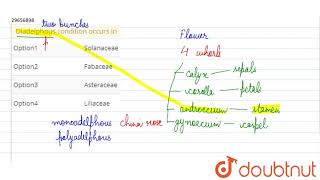 29656898
two bunches
Diadelphous condition occurs in
Option1 Solanaceae
Option2 Fabaceae
Option3 Asteraceae
Option4 Liliaceae
monoadelphous china rose
polyadelphous
Flower
4 whorls
calyx - sepals
corolla - petals
androecium - stamen
gynoecium - carpel
doubtnut